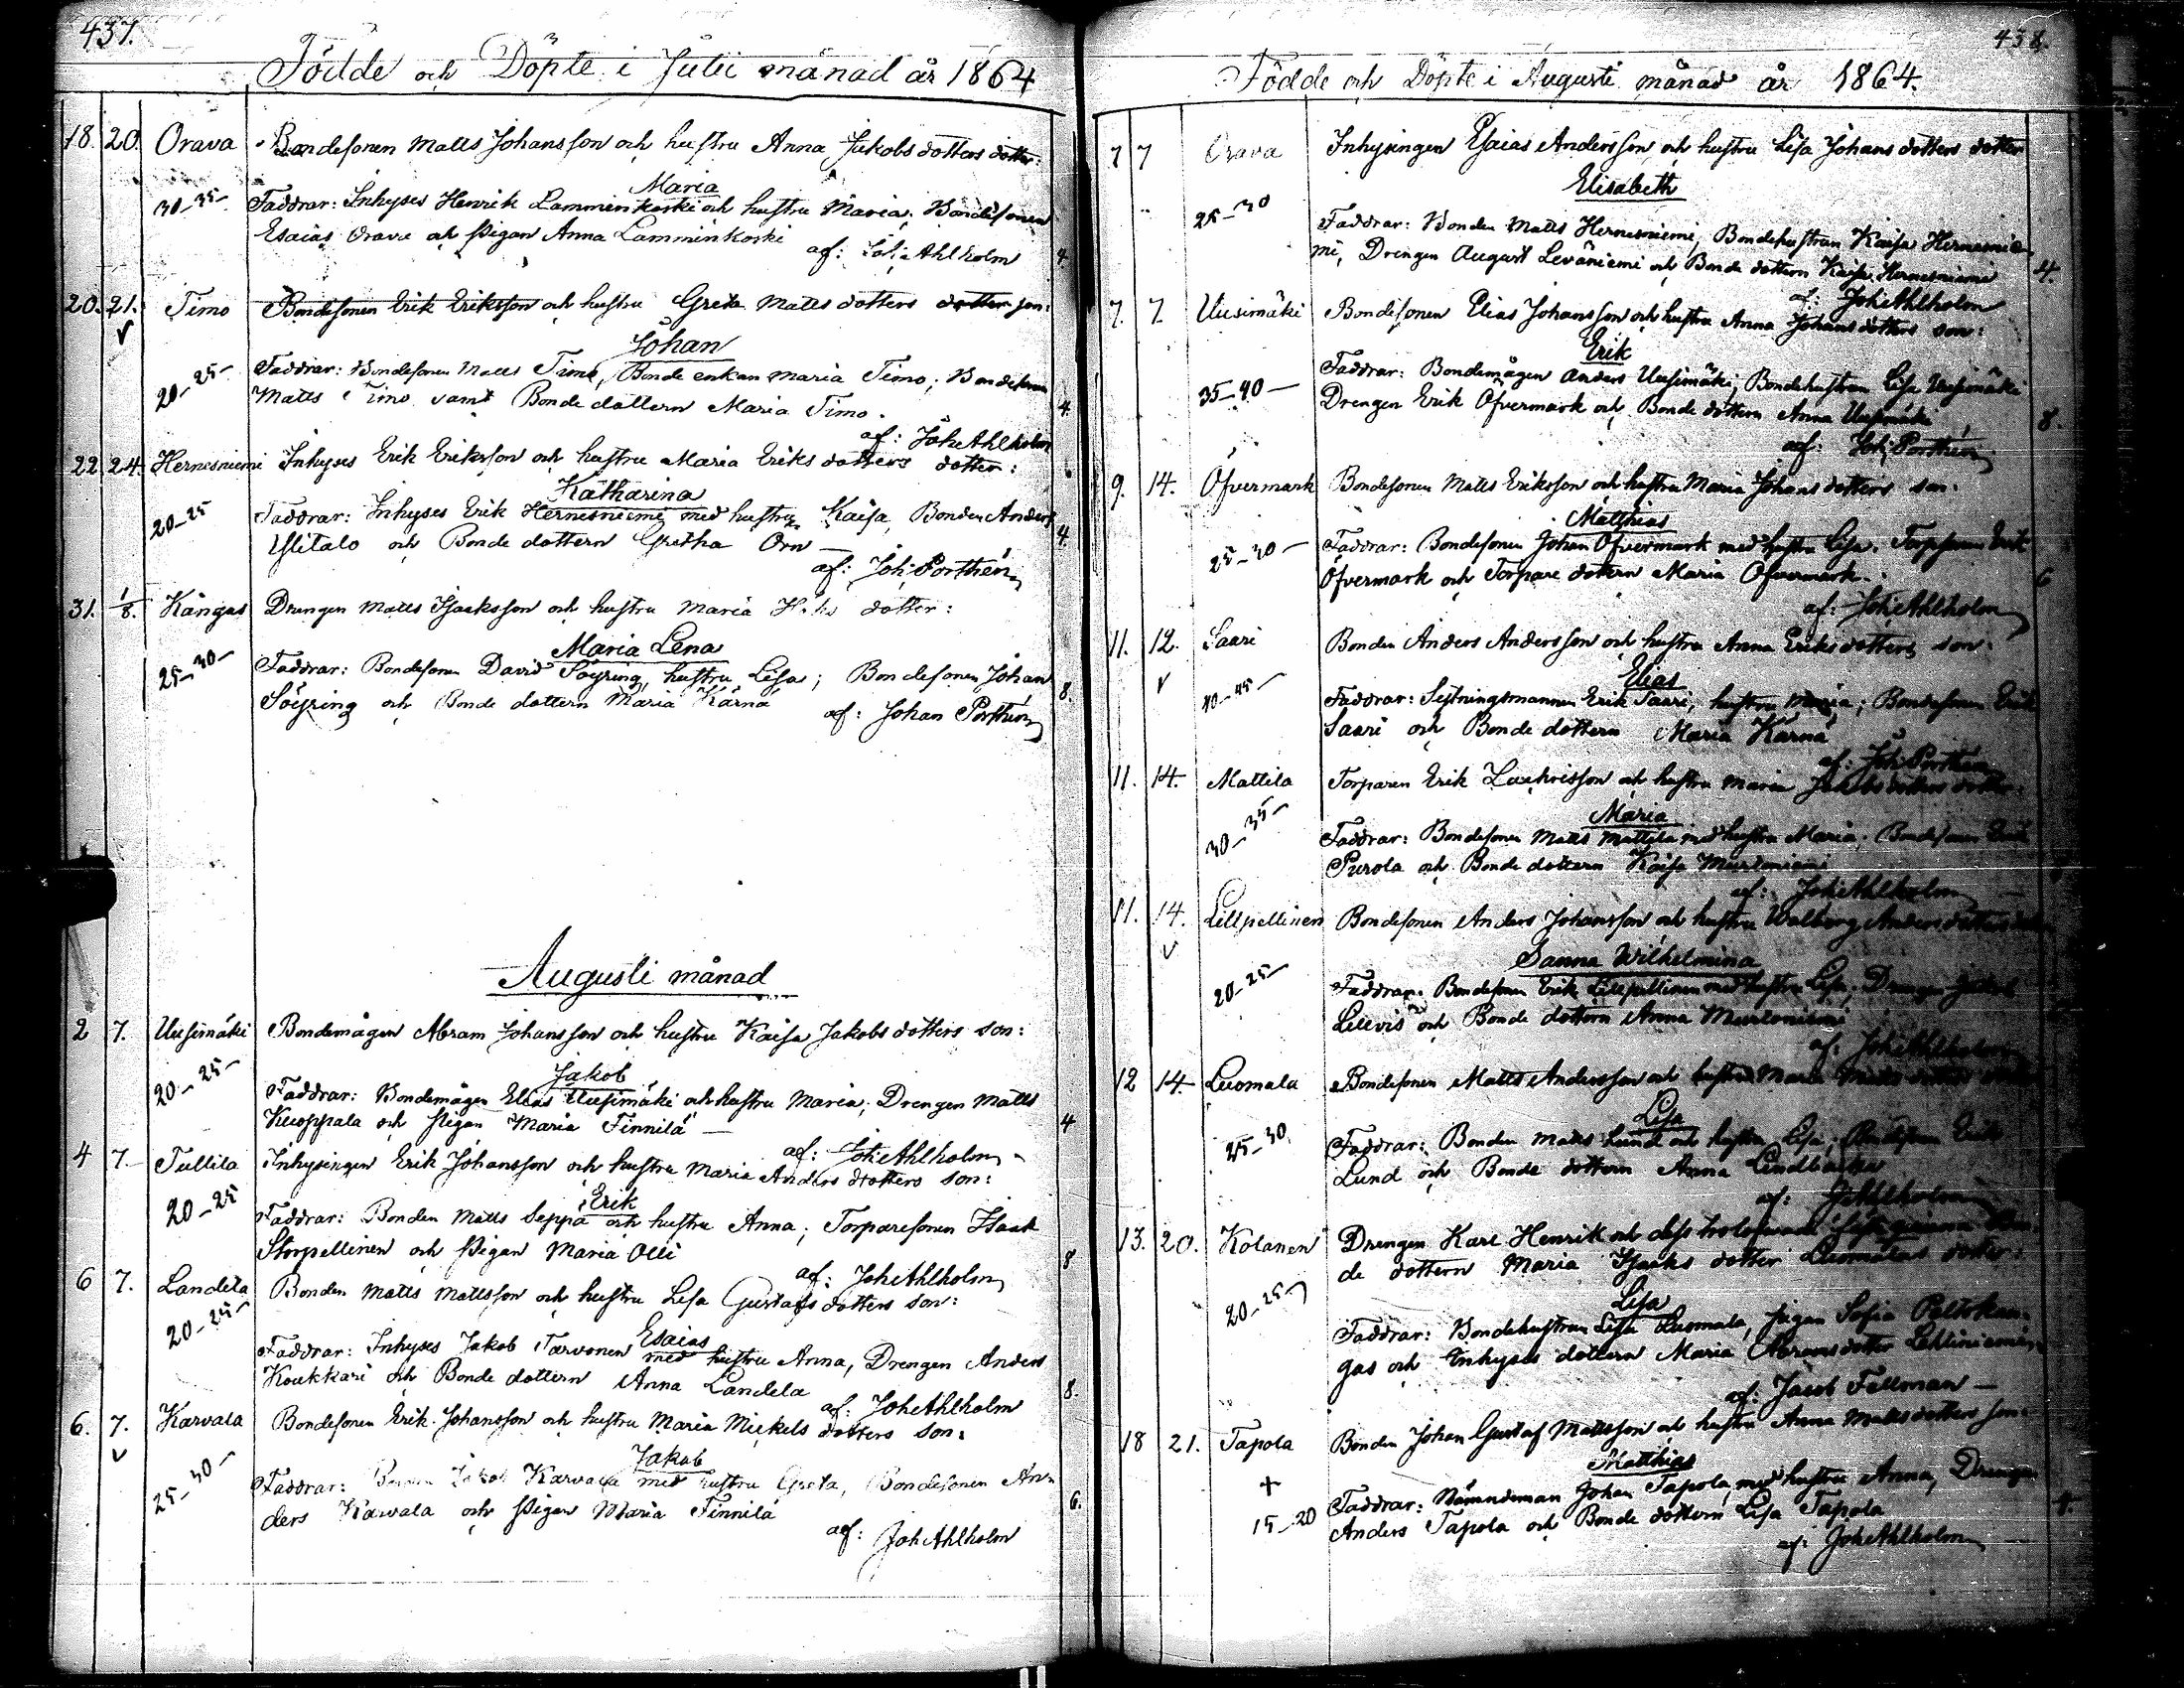 437.
Födde och Döpte i Julii månad år 1864
18. 20. Orava Bondesonen Matts Johansson och hustru Anna Jakobs dotters dotter:
Maria
30-35- Faddrar: Inhyses Henrik Lamminkoski och hustru Maria; Bondesonen
Esaias Orava och Pigan Anna Lamminkoski
af: Joh: Ahlholm 4.
20. 21. Timo Bondesonen Erik Eriksson och hustru Greta Matts dotters son:
Johan
20-25- Faddrar: Bondesonen Matts Timo, Bonde enkan Maria Timo; Bondesonen
Matts Timo samt Bonde dottern Maria Timo. 4.
af: Joh: Ahlholm
22. 24. Hernesniemi Inhyses Erik Eriksson och hustru Maria Eriks dotters dotter:
Katharina
20-25 Faddrar: Inhyses Erik Hernesniemi med hustru Kaisa, Bonden Anders
Ylitalo och Bonde dottern Gretha Orn — 4.
af: Joh: Porthén
31. 1/8. Kangas Drengen Matts Isaksson och hustru Maria dotter:
Maria Lena
25-30- Faddrar: Bondesonen David Söyring, hustru Lisa; Bondesonen Johan
Söyring och Bonde dottern Maria Kärnä 8.
af: Johan Porthén
Augusti månad
2 7. Uusimäki Bondemågen Abram Johansson och hustru Kaisa Jakobs dotters son:
Jakob
20-25- Faddrar: Bondemågen Elias Uusimäki och hustru Maria; Drengen Matts
Kuoppala och Pigan Maria Finnilä — 4
af: Joh: Ahlholm
4 7. Tullila Inhysingen Erik Johansson och hustru Maria Anders dotters son:
Erik
20-25 Faddrar: Bonden Matts Seppä och hustru Anna; Torparesonen Isaak
Storpellinen och Pigan Maria Olli 8
af: Joh: Ahlholm
6 7. Landela Bonden Matts Mattsson och hustru Lisa Gustafs dotters son:
Esaias
20-25- Faddrar: Inhyses Jakob Tarvonen med hustru Anna, Drengen Anders
Koukkari och Bonde dottern Anna Landela 8.
af: Joh: Ahlholm
6. 7. Karvala Bondesonen Erik Johansson och hustru Maria Mickels dotters son:
Jakob
25-30- Faddrar: Bonden Jakob Karvala med hustru Greta, Bondesonen An-
ders Karvala och Pigan Maria Finnilä 6.
af: Joh: Ahlholm
438.
Födde och Döpte i Augusti månad år 1864.
7 7 Orava Inhysingen Esaias Andersson och hustru Lisa Johans dotters dotter
Elisabeth
25-30 Faddrar: Bonden Matts Hernesniemi, Bondehustrun Kaisa Hernesnie-
mi, Drengen August Leväniemi och Bonde dottern Kaisa Hernesniemi 4.
af: Joh: Ahlholm
7. 7. Uusimäki Bondesonen Elias Johansson och hustru Anna Johans dotters son:
Erik
35-40- Faddrar: Bondemågen Anders Uusimäki, Bondehustrun Lisa Uusimäki
Drengen Erik Öfvermark och Bonde dottern Anna Uusimäki 8.
af: Joh: Porthén
9. 14. Öfvermark Bondesonen Matts Eriksson och hustru Maria Johans dotters son:
Matthias
25-30- Faddrar: Bondesonen Johan Öfvermark med hustru Lisa. Torparen Erik
Öfvermark och Torpare dottern Maria Öfvermark. 6
af: Joh: Ahlholm
11. 12. Saari Bonden Anders Andersson och hustru Anna Eriks dotters son:
Elias
40-45- Faddrar: Sexningsmannen Erik Saari, hustru Maria; Bondesonen Erik
Saari och Bonde dottern Maria Kärnä
af: Joh: Porthén
11. 14. Mattila Torparen Erik Zachrisson och hustru Maria Jakobs dotters dotter:
Maria
30-35- Faddrar: Bondesonen Matts Mattila med hustru Maria; Bondesonen Erik
Purola och Bonde dottern Kaisa Murtoniemi
af: Joh: Ahlholm
11. 14. Lillpellinen Bondesonen Anders Johansson och hustru Walborg Anders dotters
Sanna Wilhelmina
20-25- Faddrar: Bondesonen Erik Lillpellinen med hustru Lisa; Drengen Jakob
och Bonde dottern Anna Murtoniemi
af: Joh: Ahlholm
12 14. Luomala Bondesonen Matts Andersson och hustru Maria
Lisa
25-30. Faddrar: Bonden Matts Lund och hustru Lisa; Erik
Lund och Bonde dottern Anna Lindbacka
af: Ahlholm
13. 20. Kolanen Drengen Karl Henrik och dess trolofwade
de dottern Maria Isaks dotter Luomalas dotter:
Lisa
20-25- Faddrar: Bondehustrun Lisa Luomala, Pigan Sofia Paltokan-
gas och Inhyses dottern Maria Abrams dotter
af: Jacob Fellman —
18 21. Tapola Bonden Johan Gustaf Mattsson och hustru Anna Matts dotters son:
Matthias
+
15-20 Faddrar: Nämndeman Johan Tapola med hustru Anna, Drengen
Anders Tapola och Bonde dottern Lisa Tapola
af: Joh: Ahlholm